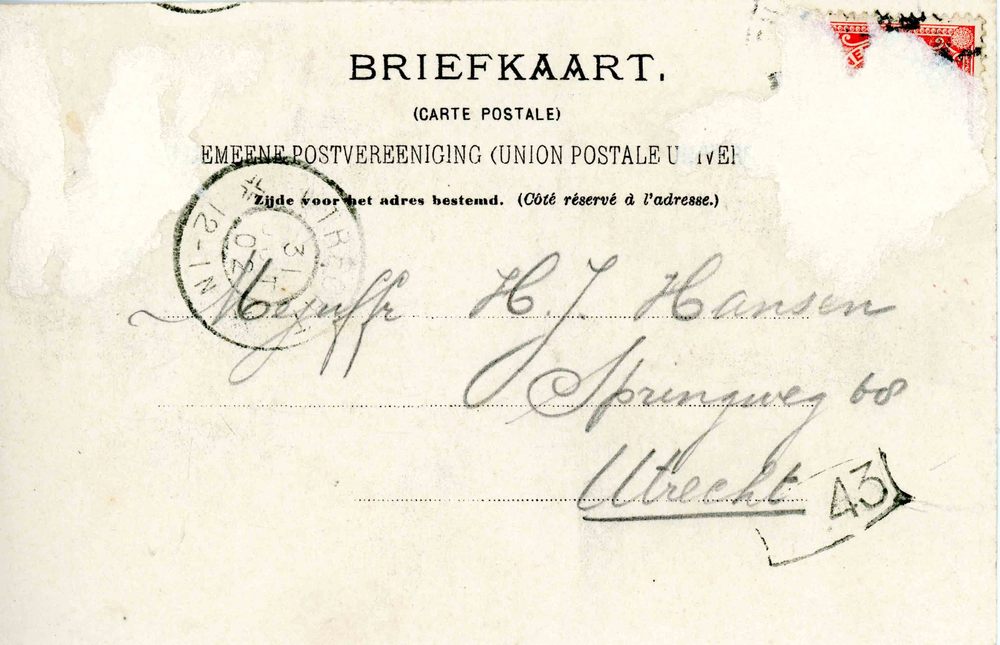 BRIEFKAART.
(CARTE POSTALE)
EMEENE POSTVEREENIGING (UNION POSTALE UNIVER
Zijde voor het adres bestemd. (Côté réservé à l'adresse.)
UTRECHT
12-1N
31
02
Mejuffr H. J. Hansen
Springweg 68
Utrecht
43